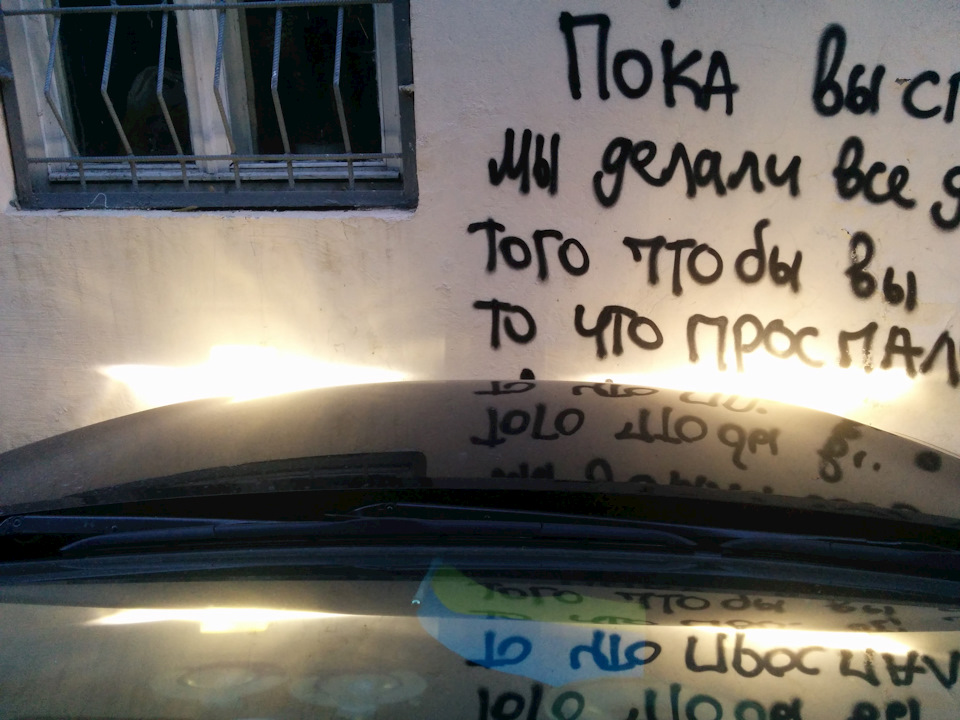 Пока вы сп
мы делали все д
того чтобы вы
то что проспал